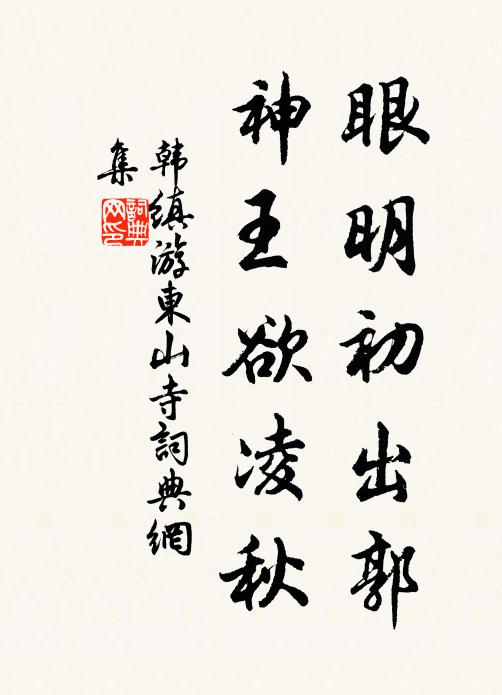 眼明初出郭
神王欲凌秋
韩缜游東山寺詞典網
集
詞典
网印